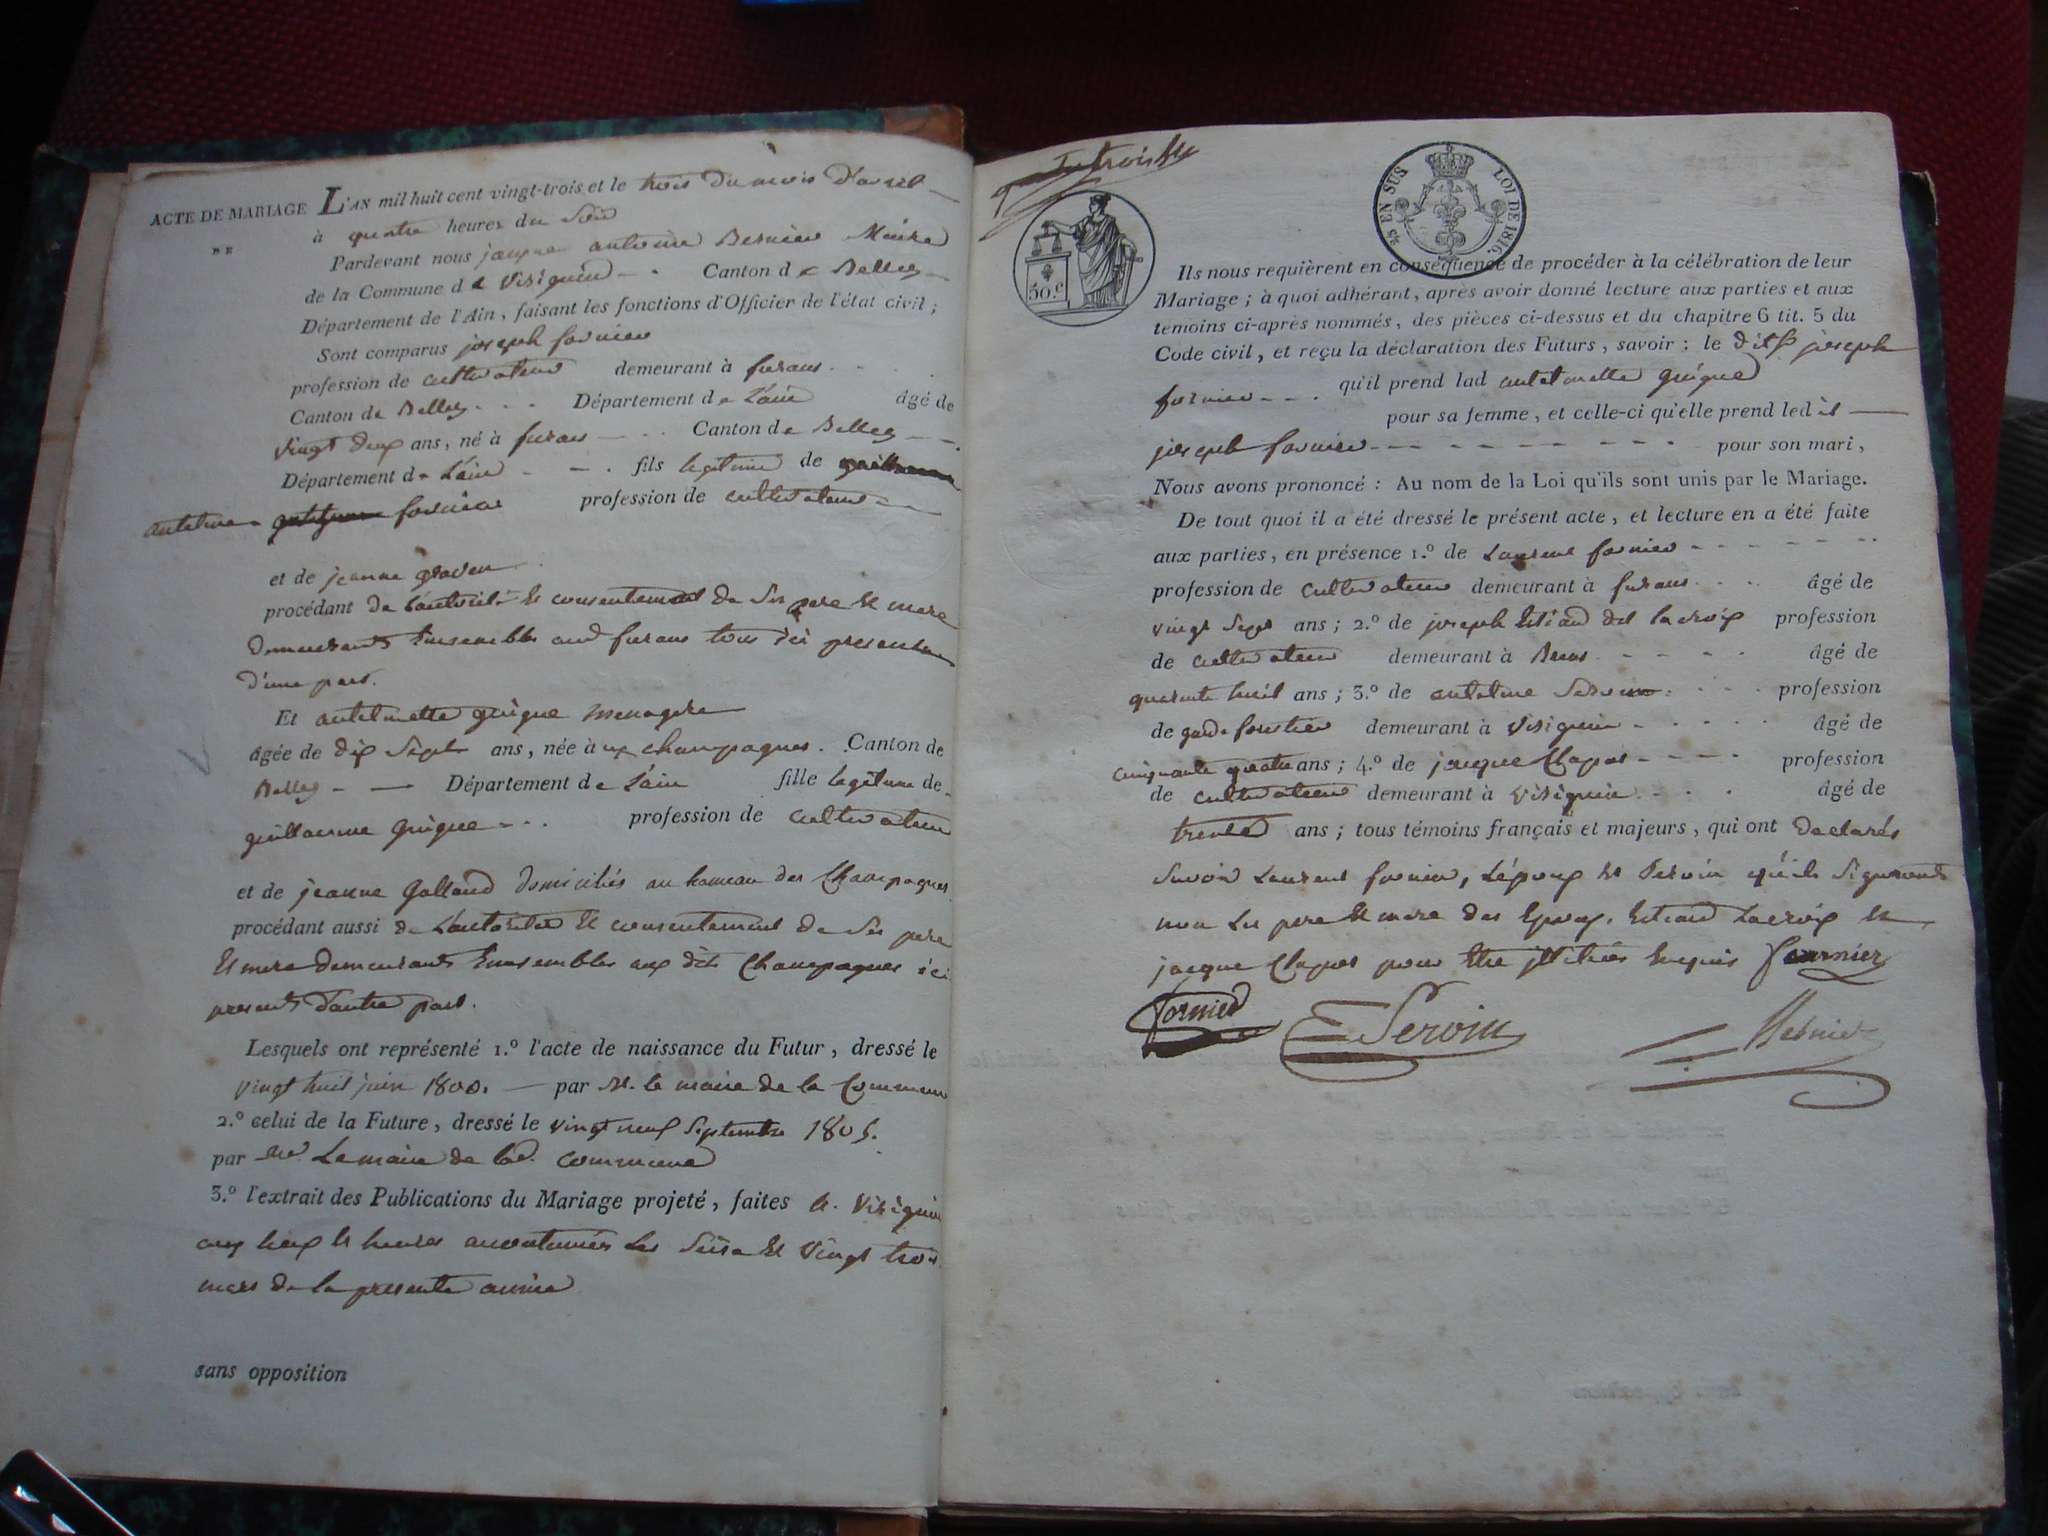 ACTE DE MARIAGE
DE
L'AN mil huit cent vingt-trois et le trois du mois d'avril
à quatre heures du Soir
Pardevant nous antoine Bernier Maire
de la Commune de Virignin Canton de Belley
Département de l'Ain, faisant les fonctions d'Officier de l'état civil ;
Sont comparus joseph fornier
profession de cultivateur demeurant à furans
Canton de Belley Département de L'ain âgé de
vingt deux ans, né à furans Canton de Belley
Département de L'ain fils legitime de
antelme fornier profession de cultivateur
et de jeanne
procédant de L'autorité et consentement de Ses pere et mere
demeurants Ensembles audt furans tous ici presents
d'une part.
Et antelmette guigue menagere
âgée de dix Sept ans, née aux champagnes. Canton de
Belley Département de L'ain fille legitime de
guillaume guigue profession de cultivateur
et de jeanne Golland domiciliés au hameau des Champagnes
procédant aussi de L'autorité et consentement de Ses pere
et mere demeurants Ensembles aux dits Champagnes ici
presents d'autre part.
Lesquels ont représenté 1.º l'acte de naissance du Futur, dressé le
vingt huit juin 1800. par Mr. le maire de la Commune
2.º celui de la Future, dressé le vingt neuf Septembre 1805.
par Mr Le maire de lad. commune
3.º l'extrait des Publications du Mariage projeté, faites à Virignin
aux lieux et heures accoutumées Les Seize et Vingt trois
mars de la presente année
sans opposition
50.c
5c EN SUS LOI DE 1816.
Ils nous requièrent en conséquence de procéder à la célébration de leur
Mariage ; à quoi adhérant, après avoir donné lecture aux parties et aux
témoins ci-après nommés, des pièces ci-dessus et du chapitre 6 tit. 5 du
Code civil, et reçu la déclaration des Futurs, savoir : le dit joseph
fornier qu'il prend lad antelmette guigue
pour sa femme, et celle-ci qu'elle prend ledit
joseph fornier pour son mari,
Nous avons prononcé : Au nom de la Loi qu'ils sont unis par le Mariage.
De tout quoi il a été dressé le présent acte, et lecture en a été faite
aux parties, en présence 1.º de Laurent fornier
profession de cultivateur demeurant à furans âgé de
vingt Sept ans ; 2.º de joseph dit Lacroix profession
de cultivateur demeurant à Brens âgé de
quarante huit ans ; 3.º de antelme Servoin profession
de garde forestier demeurant à Virignin âgé de
cinquante quatre ans ; 4.º de jacque Chapot profession
de cultivateur demeurant à Virignin âgé de
trente ans ; tous témoins français et majeurs, qui ont declarés
Savoir Laurent fornier, L'époux et Servoin qu'ils Signeront
non Les pere et mere des Epoux, Lacroix et
jacque Chapot pour être illiterés Enquis Fournier
Fornier Servoin Bernier